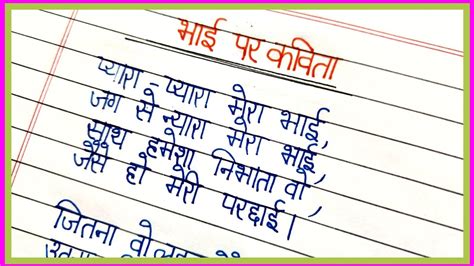 भाई पर कविता
प्यारा - प्यारा मेरा भाई,
जग से न्यारा मेरा भाई,
साथ हमेशा निभाता वो,
जैसे हो मेरी परछाई।
जितना वो